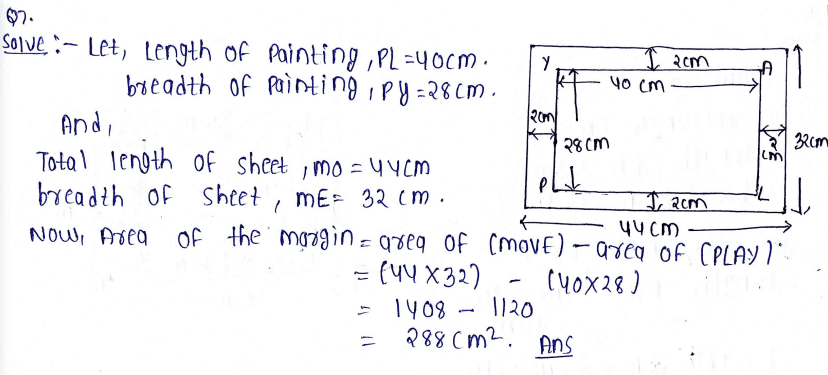 Q7.
Solve :- Let, Length of Painting, PL = 40cm.
breadth of Painting, PY = 28cm.
And,
Total length of sheet, mo = 44cm
breadth of sheet, mE = 32 cm.
Now, Area of the margin = area of (MOVE) - area of (PLAY)
= (44 X 32) - (40X28)
= 1408 - 1120
= 288 cm². Ans
Y
2cm
A
40 cm
2cm
28cm
2
cm
32cm
P
L
2cm
44 cm